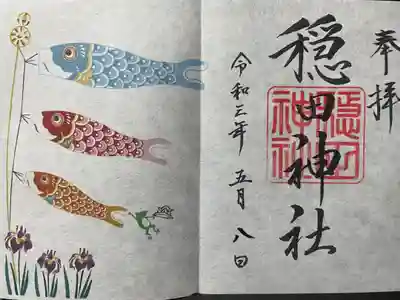 奉拝
穏田神社
穏田神社
令和三年五月八日